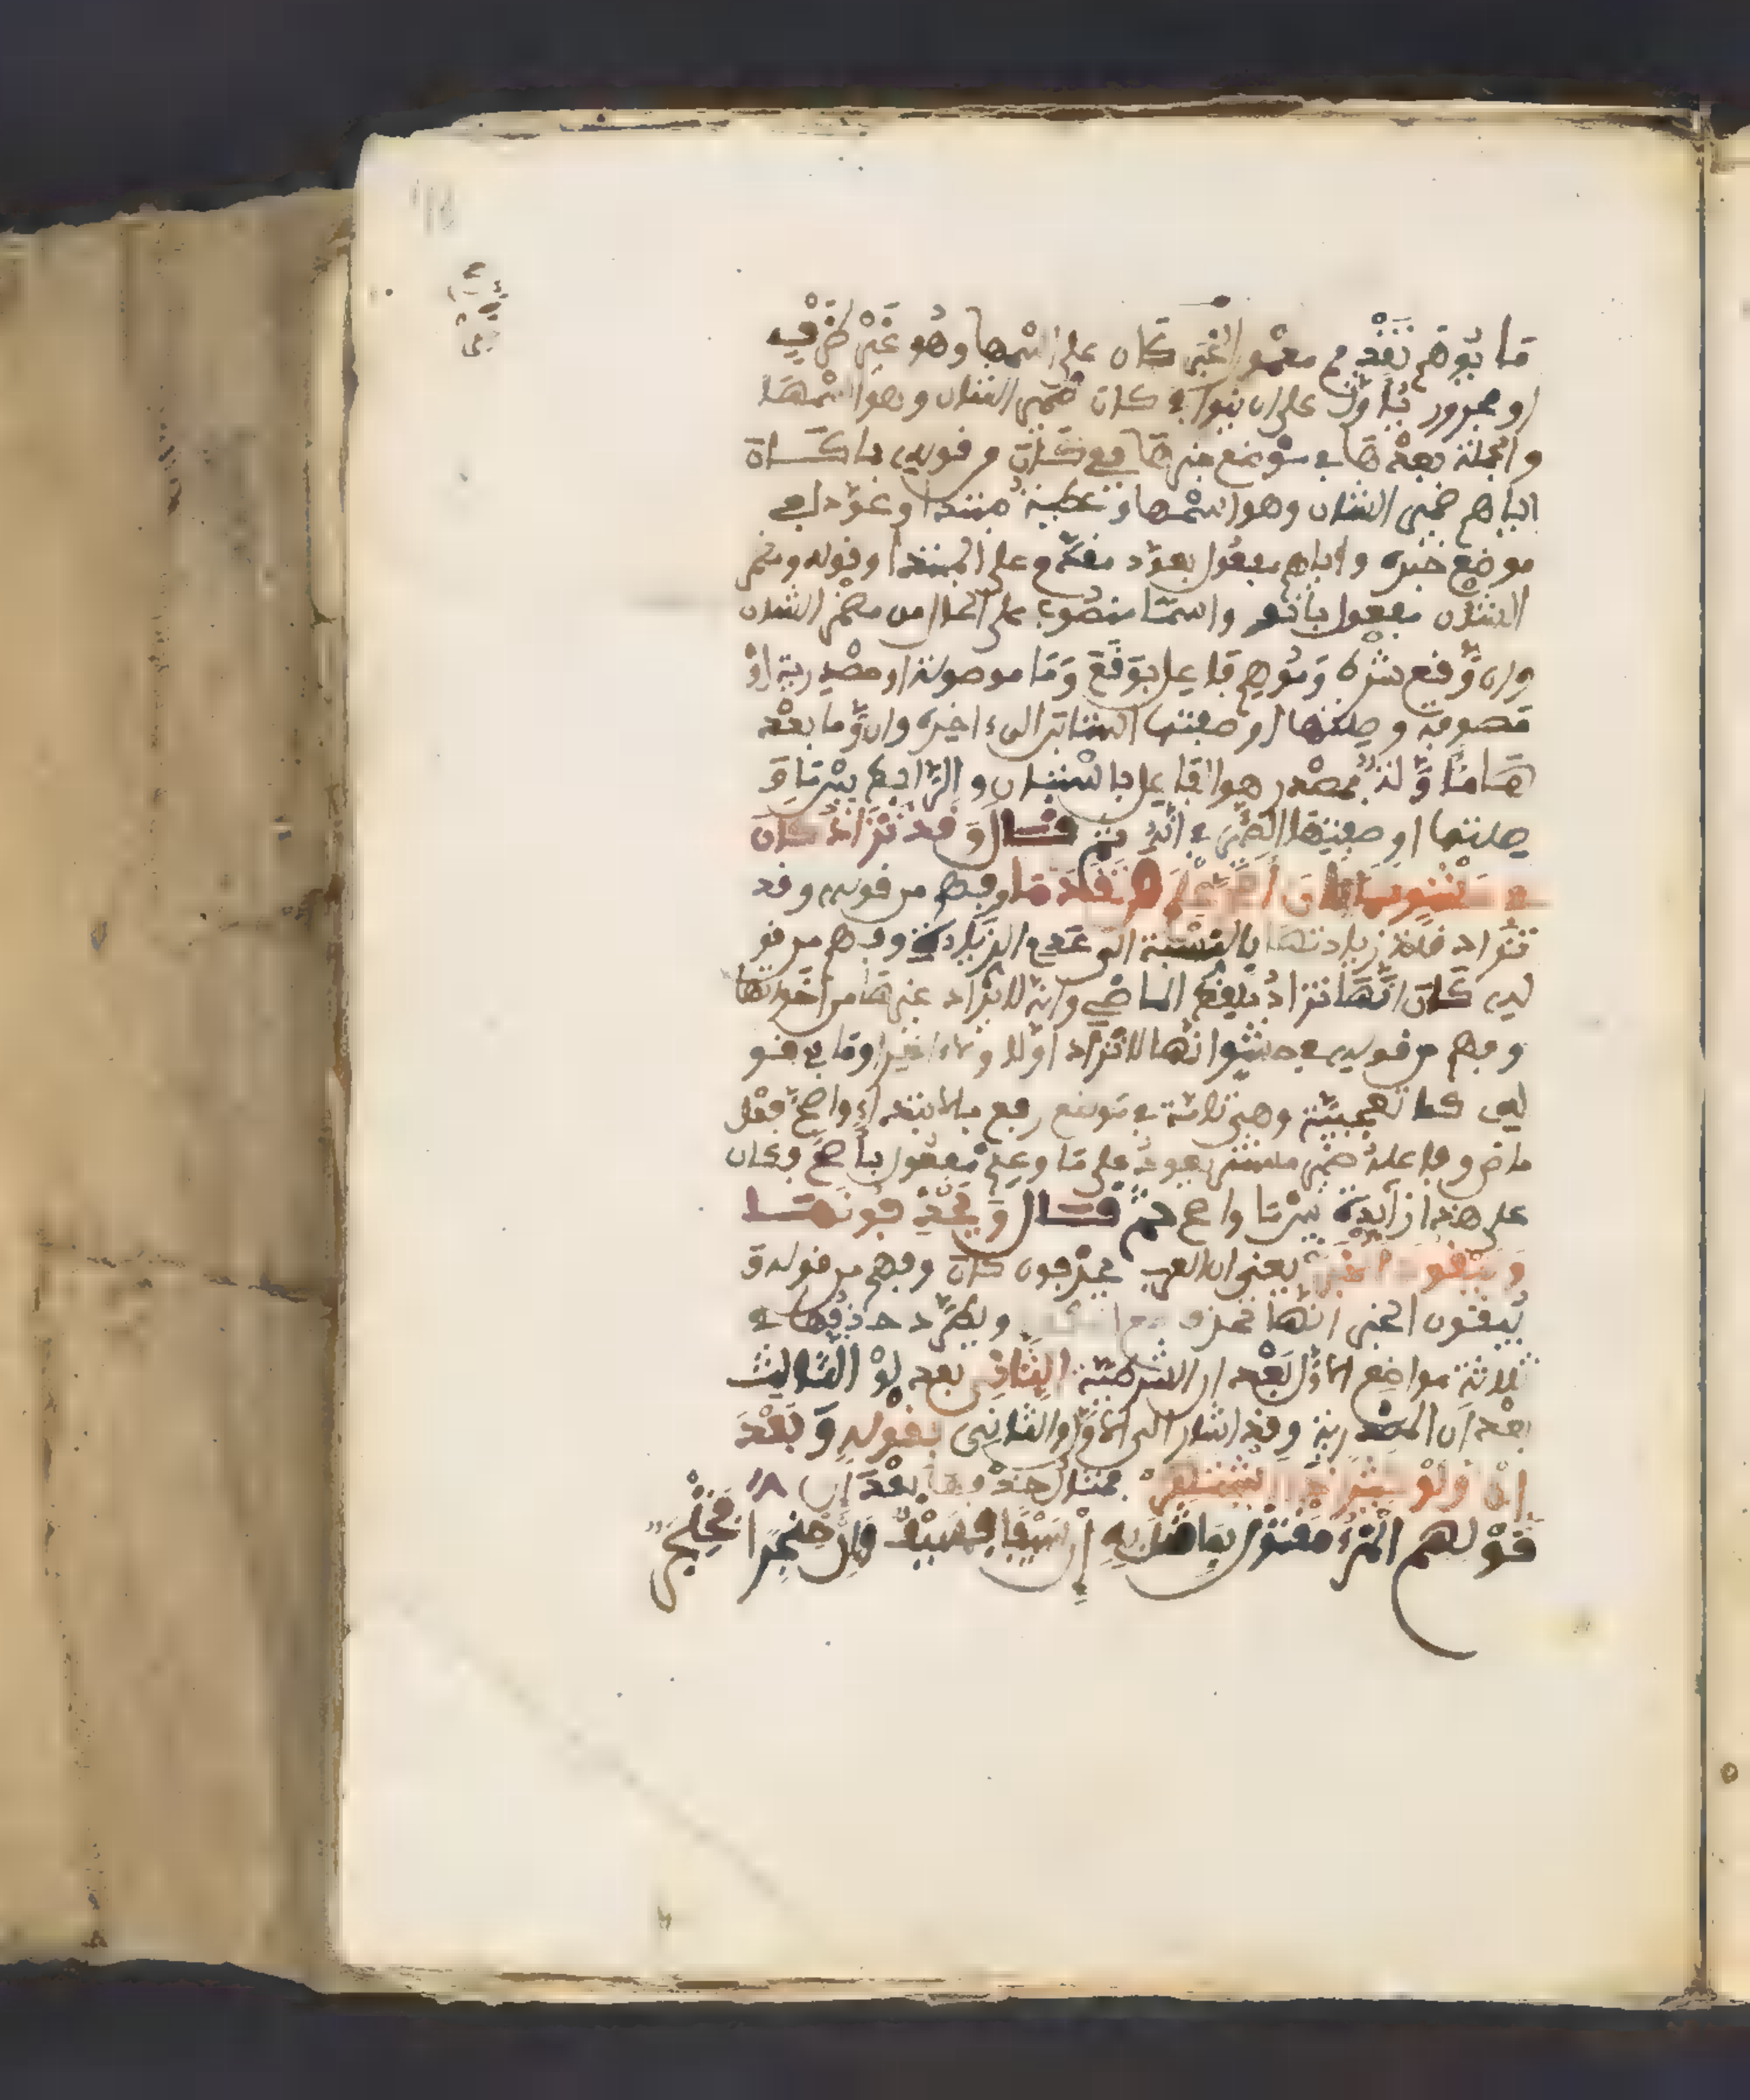 ما يوهم تقديم معمول الخبر كان على اسمها وهو غير ظرف
او مجرور تاول على ان ينوا في كان ضمير الشان وهو اسمها
والجملة بعدها في موضع خبرها فمع كان من قوله بما كان
اياهم ضمير الشان وهو اسمها وعطية مبتدا وعود في
موضع خبره واياهم مفعول بعود مقدم على المبتدا وقوله ومضمر
الشان مفعول بانو واسما منصوب على الحال من مضمر الشان
وان وقع شرط وموهم فاعل بوقع وما موصولة او مصدرية او
موصوفة وصلتها او صفتها استبان الى ءاخره وان وما بعدها
في تاويل مصدر هو الفاعل باستبان والرابط بين ما و
صلتها او صفتها الضمير في انه ثم قال وقد تزاد كان
في حشو كما كان اصح علم من تقدما وفهم من قوله وقد
تزاد قلة زيادتها بالنسبة الى عدم الزيادة وفهم من قو
له كان انها تزاد بلفظ الماضي وانه لا تزاد غيرها من اخواتها
وفهم من قوله في حشو انها لا تزاد اولا ولا ءاخيرا وما في قو
له كما تعجبية وهي تامة في موضع رفع بالابتداء واصح فعل
ماض وفاعله ضمير مستتر يعود على ما وعلم مفعول باصح وكان
على هذا زايدة بين ما واصح ثم قال ويحذفونها
ويبقون الخبر يعني ان العرب يحذفون كان وفهم من قوله و
يبقون الخبر انها تحذف مع ويطرد حذفها في
ثلاثة مواضع الاول بعد ان الشرطية الثاني بعد لو الثالث
بعد ان المصدرية وقد اشار الى الاول والثاني بقوله وبعد
ان ولو كثيرا ذا اشتهر فمثال حذفها بعد ان
قولهم المرء مقتول بما قتل به ان سيفا فسيف وان خنجرا فخنجر